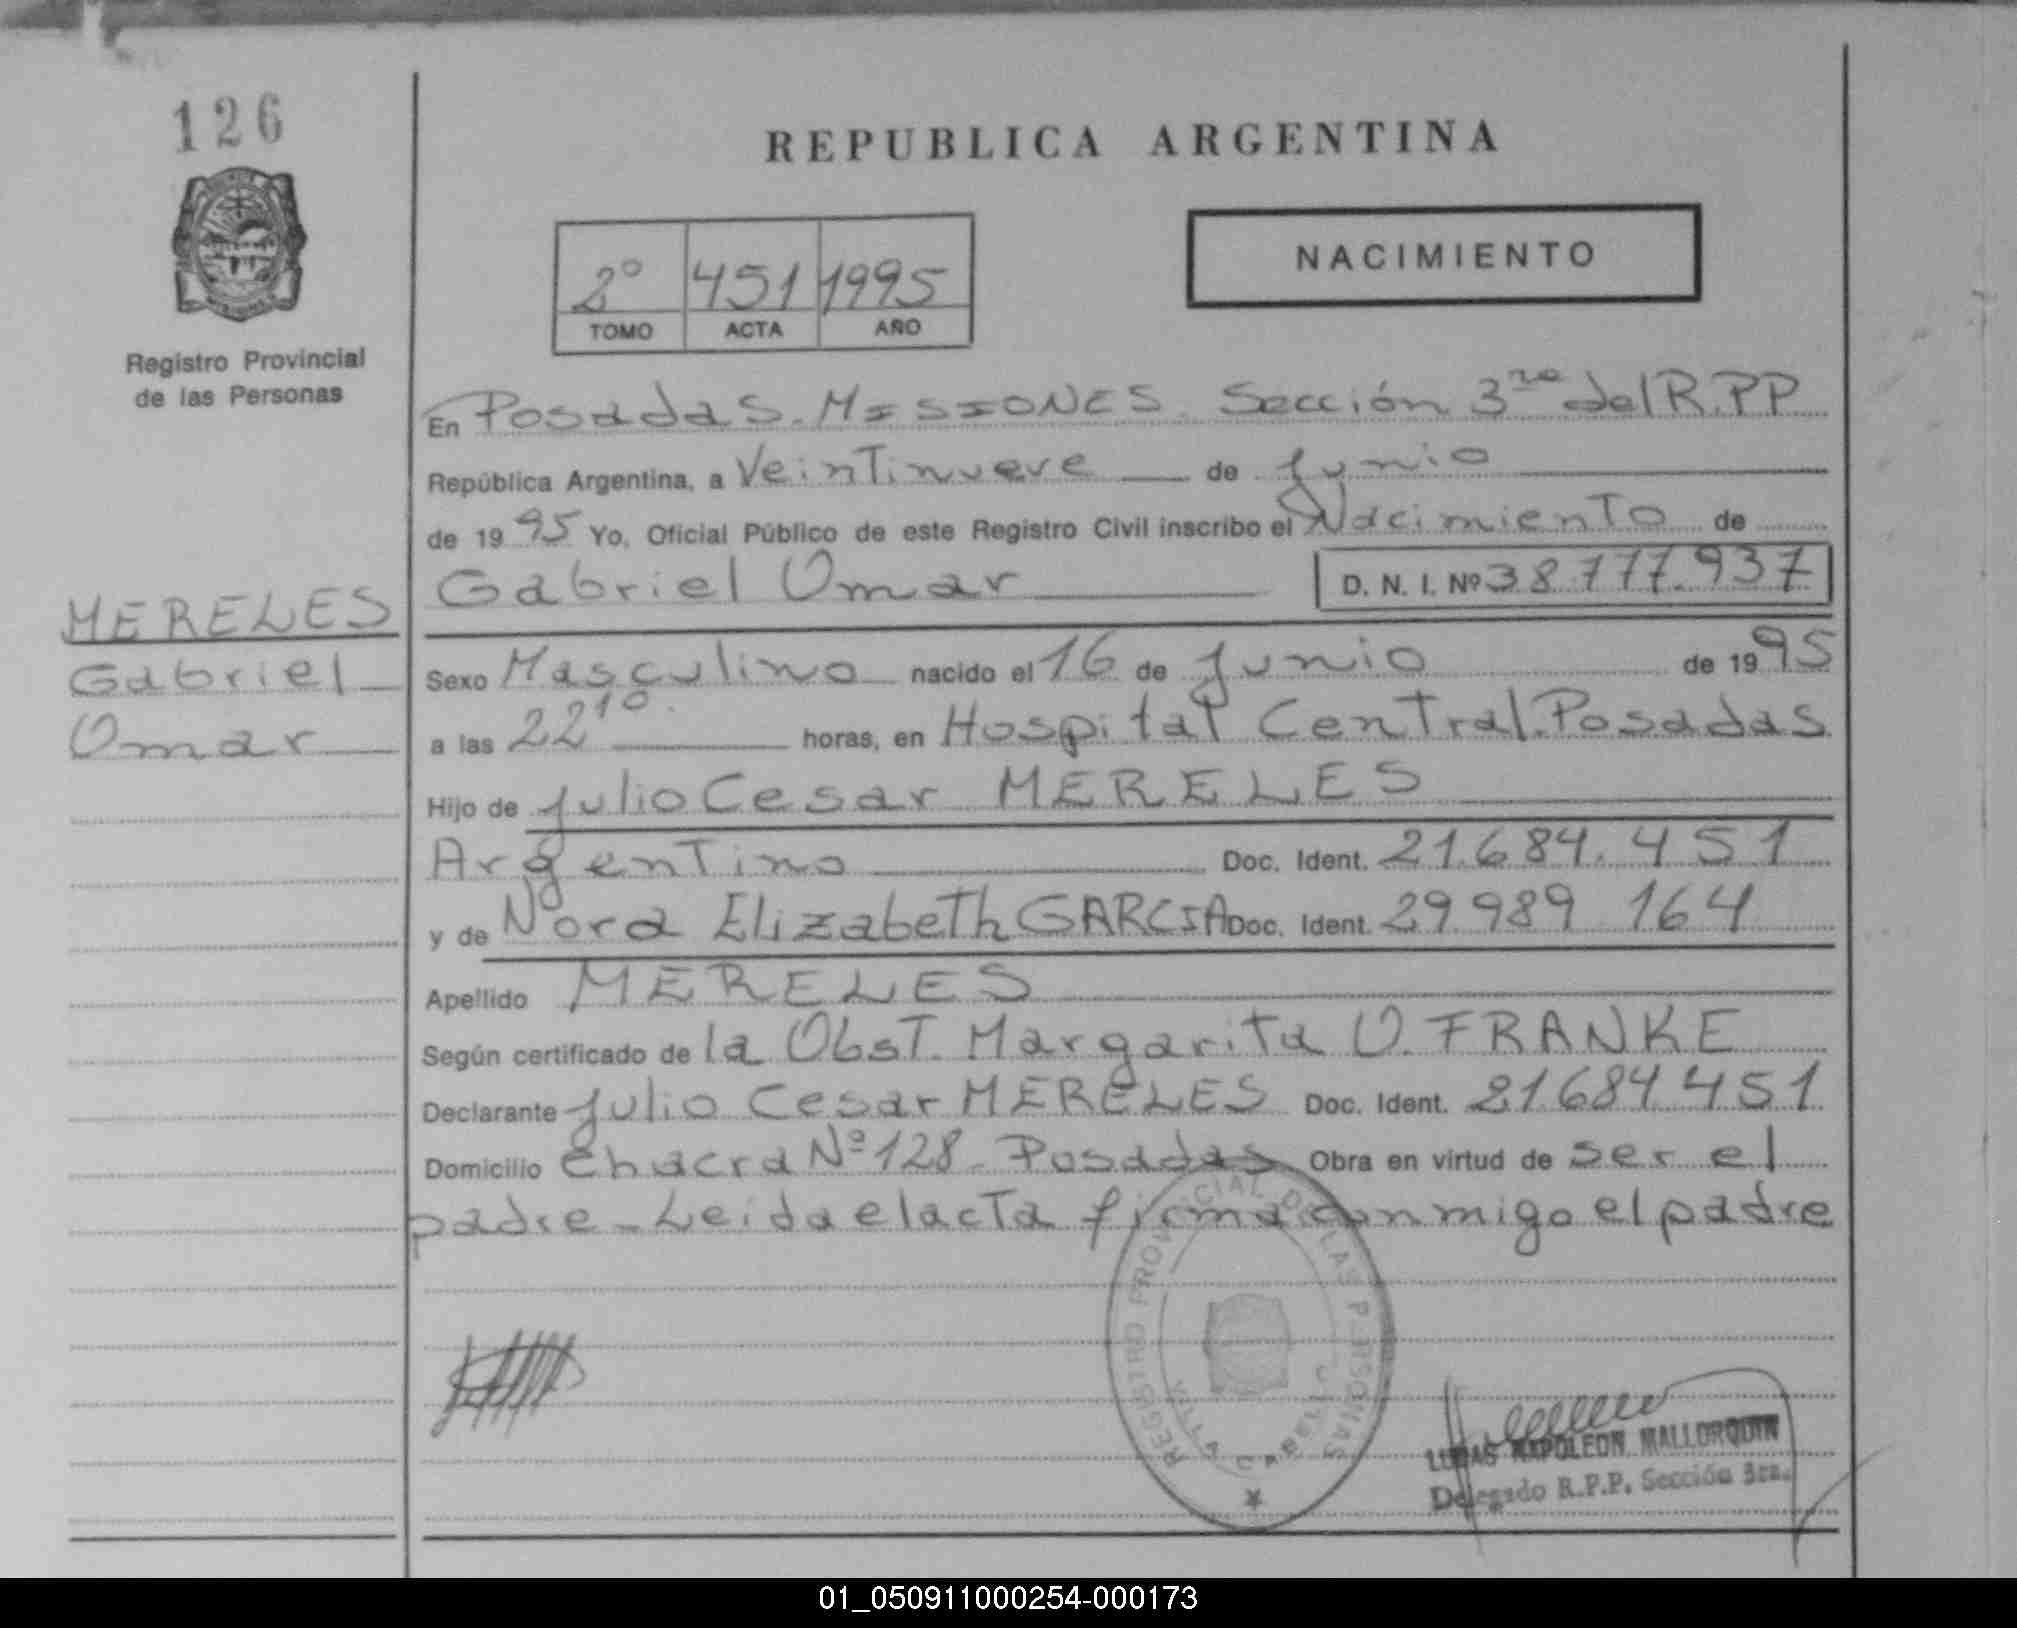 126
REPUBLICA ARGENTINA
2º 451 1995
TOMO ACTA AÑO
NACIMIENTO
Registro Provincial
de las Personas
En Posadas. MISIONES. Sección 3ra del R.PP
República Argentina, a Veintinueve de Junio
de 1995 Yo, Oficial Público de este Registro Civil inscribo el Nacimiento de
Gabriel Omar D. N. I. Nº 38.777.937
MERELES
Gabriel
Omar
Sexo Masculino nacido el 16 de Junio de 1995
a las 22 10 horas, en Hospital Central. Posadas
Hijo de Julio Cesar MERELES
Argentino Doc. Ident. 21.684.451
y de Nora Elizabeth GARCIA Doc. Ident. 29.989 164
Apellido MERELES
Según certificado de la Obst. Margarita O. FRANKE
Declarante Julio Cesar MERELES Doc. Ident. 21684451
Domicilio Chacra Nº 128. Posadas Obra en virtud de ser el
padre - Leida el acta firma conmigo el padre
REGISTRO PROVINCIAL DE LAS PERSONAS
VILLA CABELLO
LUCAS NAPOLEON MALLORQUIN
Delegado R.P.P. Sección 3ra.
01_050911000254-000173